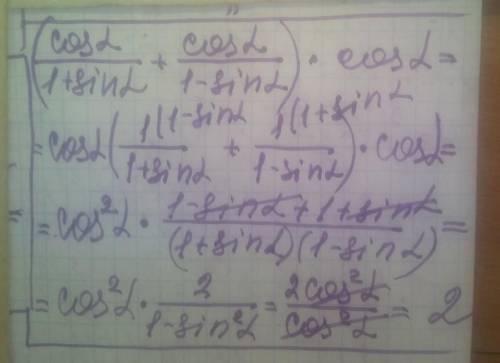 (cosα/(1+sinα) + cosα/(1-sinα)) · cosα =
= cosα(1(1-sinα/(1+sinα) + 1(1+sinα/(1-sinα)) · cosα =
= cos²α · (1-sinα+1+sinα)/((1+sinα)(1-sinα)) =
= cos²α · 2/(1-sin²α) = 2cos²α/cos²α = 2